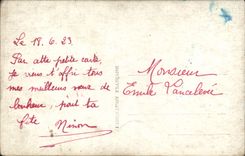 Le 18.6.23
Par cette petite carte,
je veux t'offrir tous
mes meilleurs vœux de
bonheur, pour ta
fête
Ninon
Monsieur
Emile